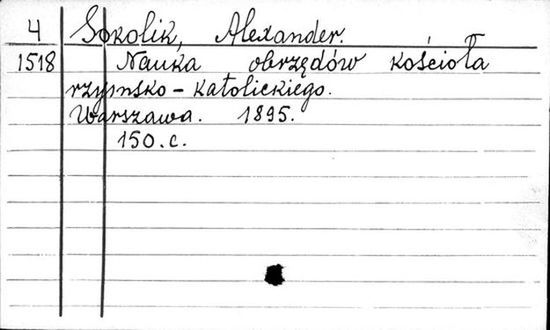 4 Sokolik, Alexander.
1518 Nauka obrzędów kościoła
rzymsko-katolickiego.
Warszawa. 1895.
150.c.